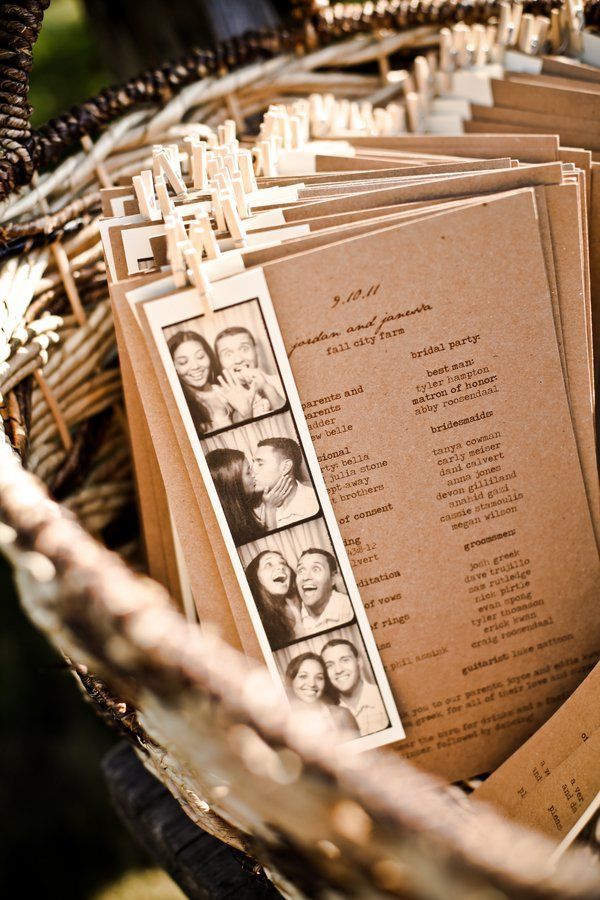 9.10.11
jordan and janessa
fall city farm
parents and
parents
adder
ew belle
sional
rty: bella
julia stone
pt away
t brothers
of consent
ng
438-12
lvert
ditation
of vows
of rings
phil assink
bridal party:
best man:
tyler hampton
matron of honor:
abby roosendaal
bridesmaids:
tanya cowman
carly meiser
dani calvert
anna jones
devon gilliland
anahid gazi
cassie stamoulis
megan wilson
groomsmen:
josh greek
dave trujillo
sam rutledge
nick pirtle
evan spong
tyler thomason
erick kwan
craig roosendaal
guitarist: luke mattson
you to our parents, joyce and eddie
greek, for all of their love and
near the barn for drinks and a
dinner, followed by dancing
a ver
and da
pleas